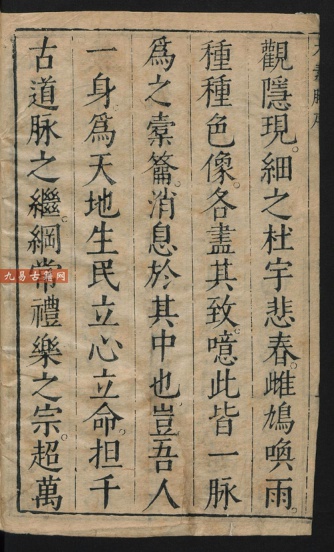 觀隱現。細之杜宇悲春。雎鳩喚雨。
種種色像。各盡其致。噫此皆一脉
為之橐籥。消息於其中也。豈吾人
一身為天地生民立心立命。担千
古道脉之繼。綱常禮樂之宗。超萬
九易古籍网